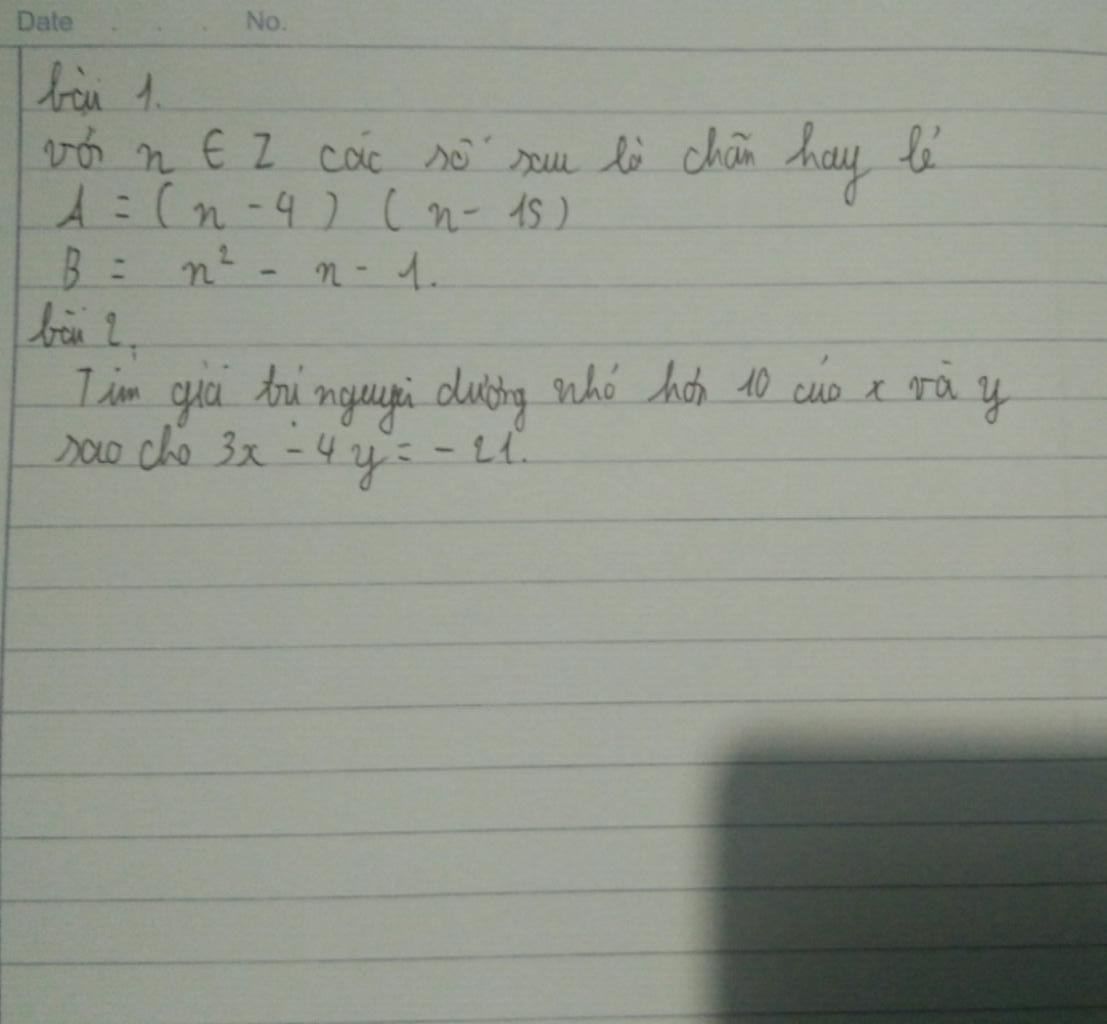 Date . . . No.
bài 1.
với n ∈ Z các số sau là chẵn hay lẻ
A = (n - 4) (n - 15)
B = n² - n - 1.
bài 2.
Tìm giá trị nguyên dương nhỏ hơn 10 của x và y
sao cho 3x - 4y = - 21.